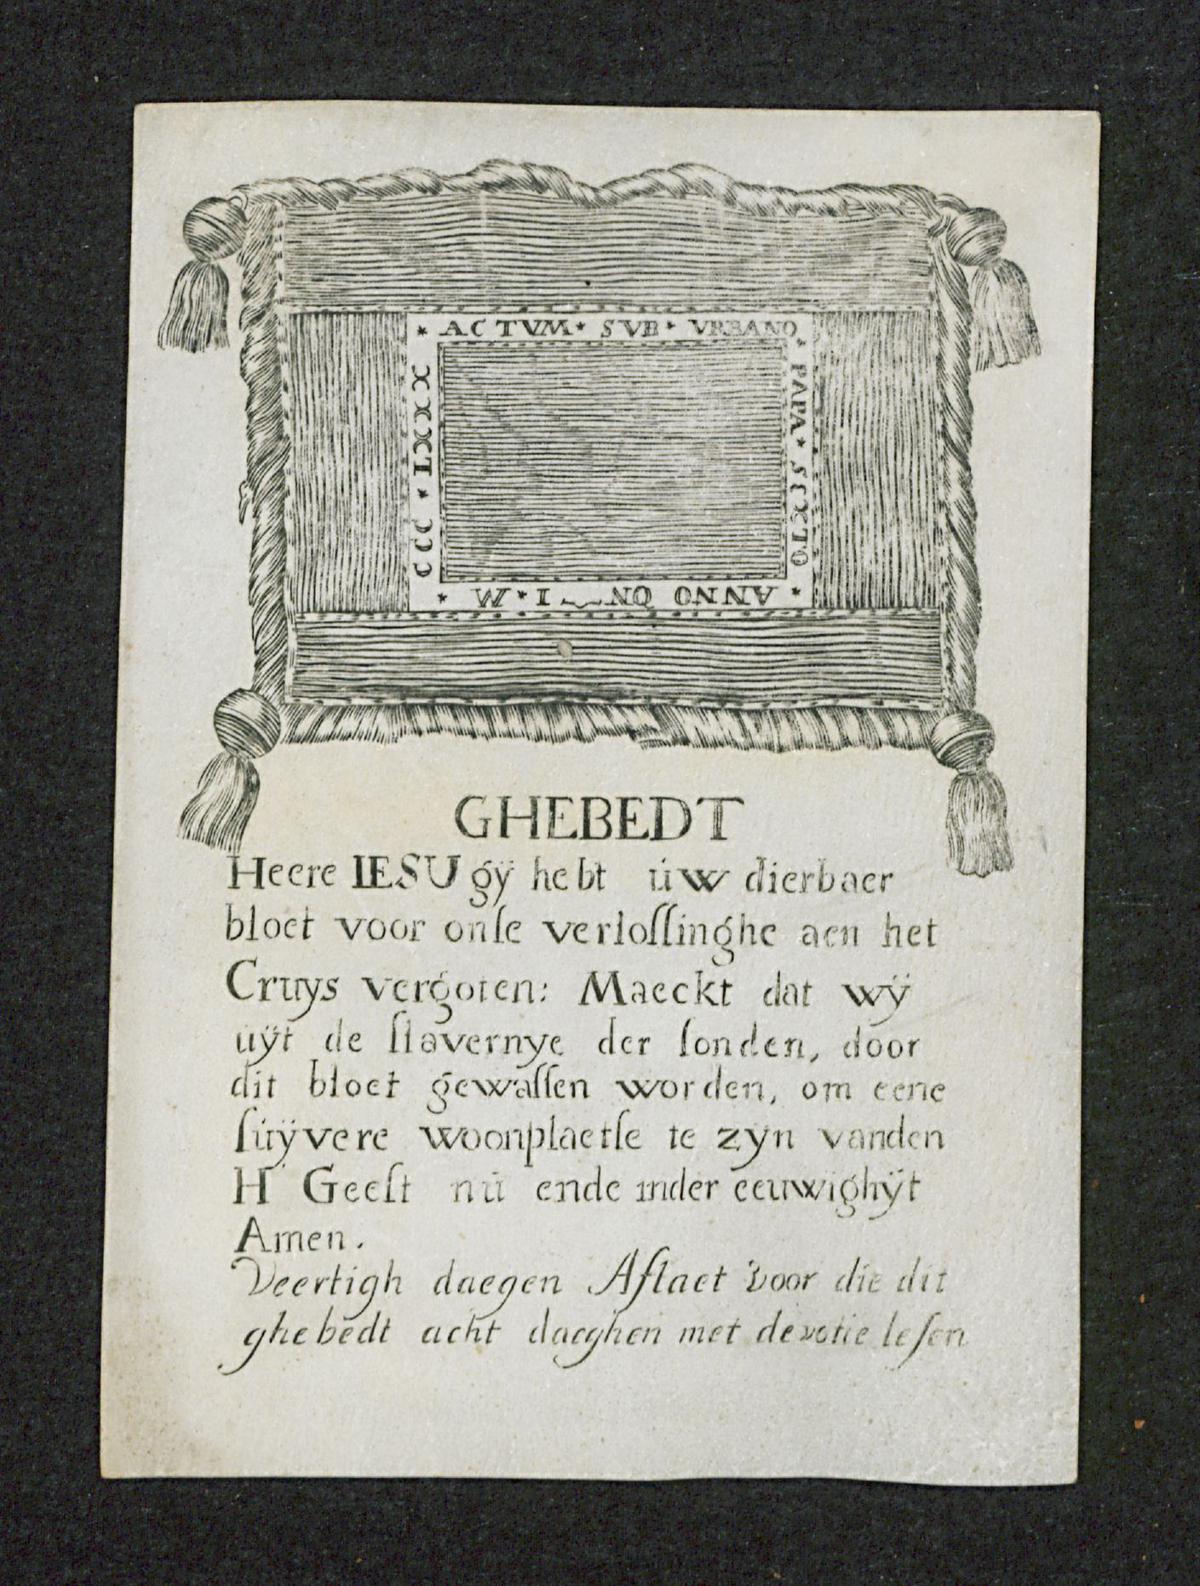 * ACTVM * SVB * VRBANO
* PAPA * SEXTO
* ANNO DNI * M
CCC * LXXX
GHEBEDT
Heere IESU gÿ hebt úw dierbaer
bloet voor onſe verloſſinghe aen het
Cruys vergoten: Maeckt dat wÿ
uÿt de ſlavernye der ſonden, door
dit bloet gewaſſen worden, om eene
ſuÿvere woonplaetſe te zyn vanden
H Geeſt nú ende inder eeuwighÿt
Amen.
Veertigh daegen Aflaet voor die dit
ghebedt acht daeghen met devotie leſen